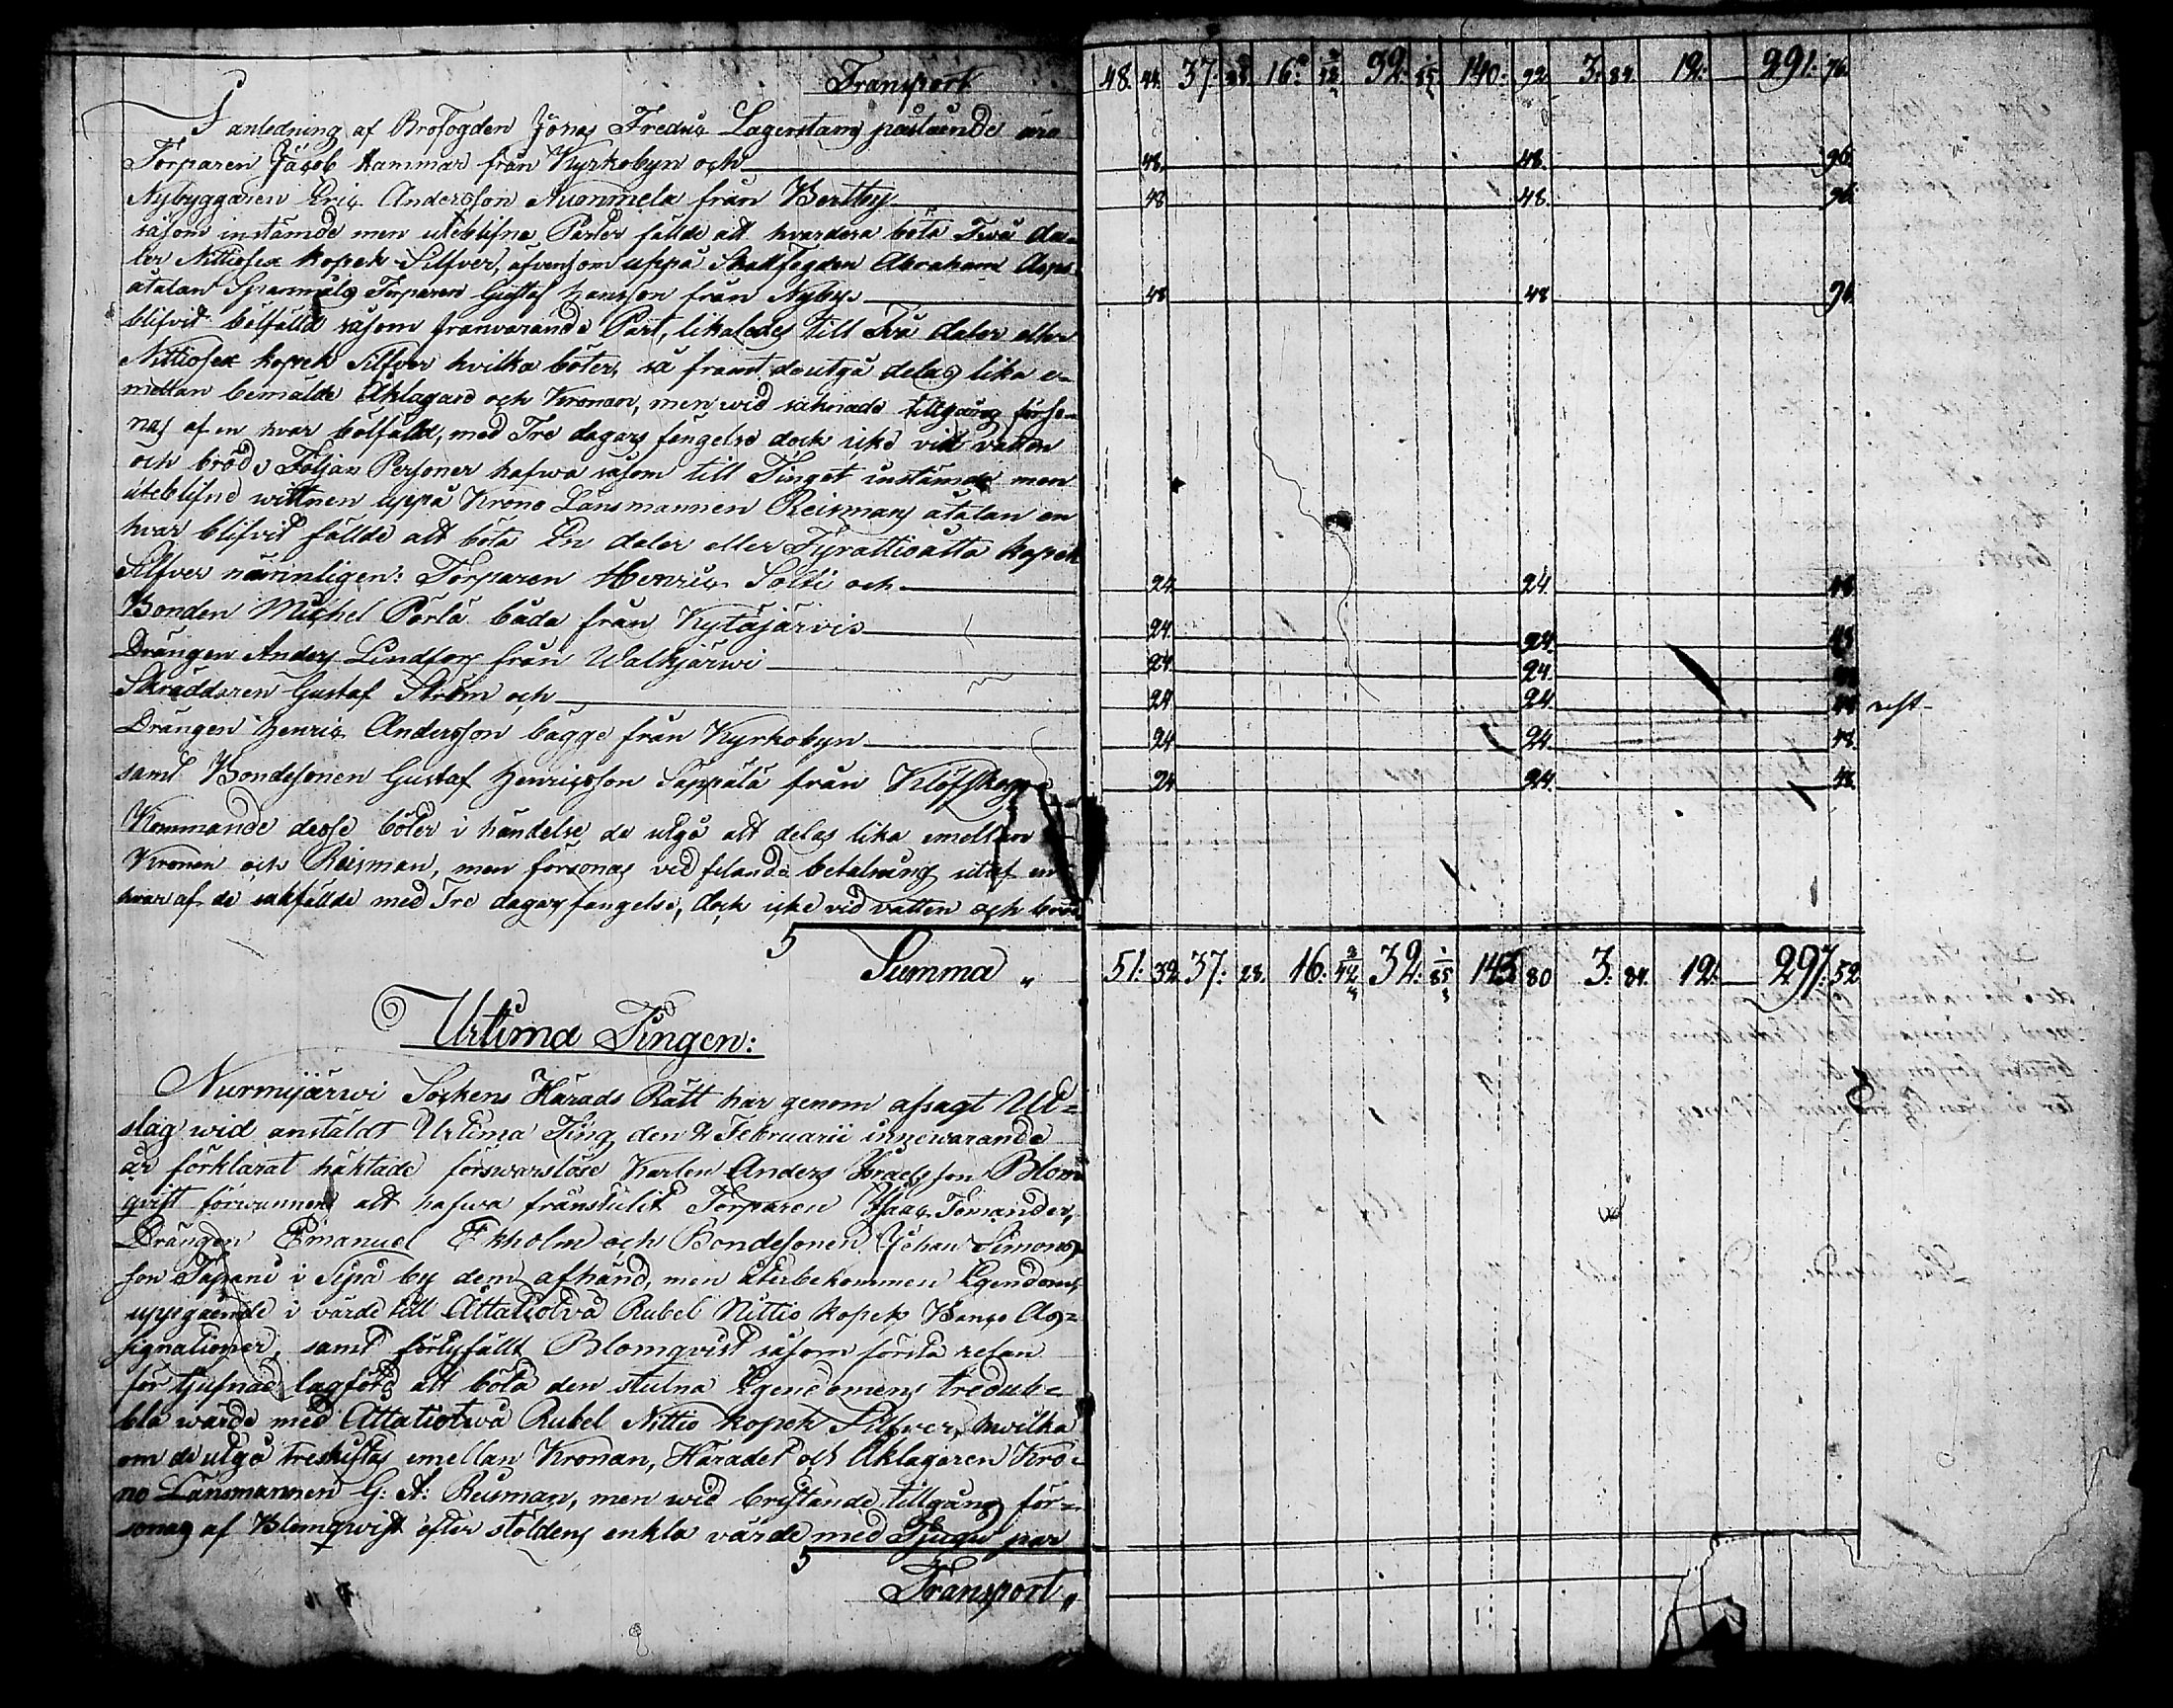 Transport 48. 44. 37. 28. 16. 32. 140. 92. 3. 84. 12. — 291. 76.
I anledning af Brofogden Jonas Fredric Lagerstams påstående äro
Torparen Jacob Hammar från Kyrkobyn och — 48. 48. 96.
Nybyggaren Eric Andersson Nuonmela från Bertby — 48 48. 96.
såsom instämde men uteblifne Parter fällde att hvardera böta Två da-
ler Nittiosex kopek Silfver, äfvensom uppå Skallfogden Abraham
åtalan Torparen Gustaf Hansson från Nyby — 48 48 96.
blifvit bötfälld såsom frånvarande Part, likaledes till Två daler eller
Nittiosex kopek Silfver hvilka böter, så framt de utgå delas lika e-
mellan bemälde Åklagare och Kronan, men wid saknade tillgång förso-
nas af en hvar bötfälld, med Tre dagars fängelse dock icke vid vatten
och bröd; Följan Personer hafwa såsom till Tinget instämde men
uteblifne wittnen uppå Krono Länsmannen Reismans åtalan en
hvar blifvit fällde att böta En daler eller Fyratioåtta kopek
Silfver nämnligen: Torparen Henric Solti och — 24. 24. 48
Bonden Michel Pärlä båda från Kytäjärvis — 24. 24. 48
Drängen Anders Lindfors från Walkjärwi — 24. 24.
Skräddaren Gustaf Ström och — 24 24 48 rest
Drängen Henric Andersson bägge från Kyrkobyn — 24 24. 48
samt Bondesonen Gustaf Henricsson Seppälä från Klöfskog — 24 24. 48.
Kommande desse böter i händelse de utgå att delas lika emellan
Kronan och Reisman, men försonas vid felande betalning utaf en
hvar af de sakfällde med Tre dagars fängelse, dock icke vid vatten och bröd
Summa „ 51. 32. 37. 28. 16. 32. 143 80 3. 84. 12. — 297. 52
Urtima Tingen:
Nurmijärwi Sockens Härads Rätt har genom afsagt Ut=
slag wid anstäldt Urtima Ting den 2 Februarii innewarande
år förklarat häktade förswarslöse Karlen Anders Israelsson Blom-
qvist förwunnen att hafwa frånstulit Torparen Isaac Ternander,
Drängen Emanuel Ekholm och Bondesonen Johan Simons-
son Tapani i Sepå by dem afhänd, men återbekommen Egendom,
uppgående i värde till Åttatiotvå Rubel Nittio kopek Banco As=
signationer, samt förthyfällt Blomqvist såsom första resan
för tjufnad lagförd att böta den stulna Egendomens tredub=
bla wärde med Åttatiotwå Rubel Nittio kopek Silfver, hwilka
om de utgå treskiftas emellan Kronan, Häradet och Åklagaren Kro-
no Länsmannen G: A: Reisman, men wid bristande tillgång för=
sonas af Blomqwist efter stöldens enkla värde med Tjugu par
Transport „